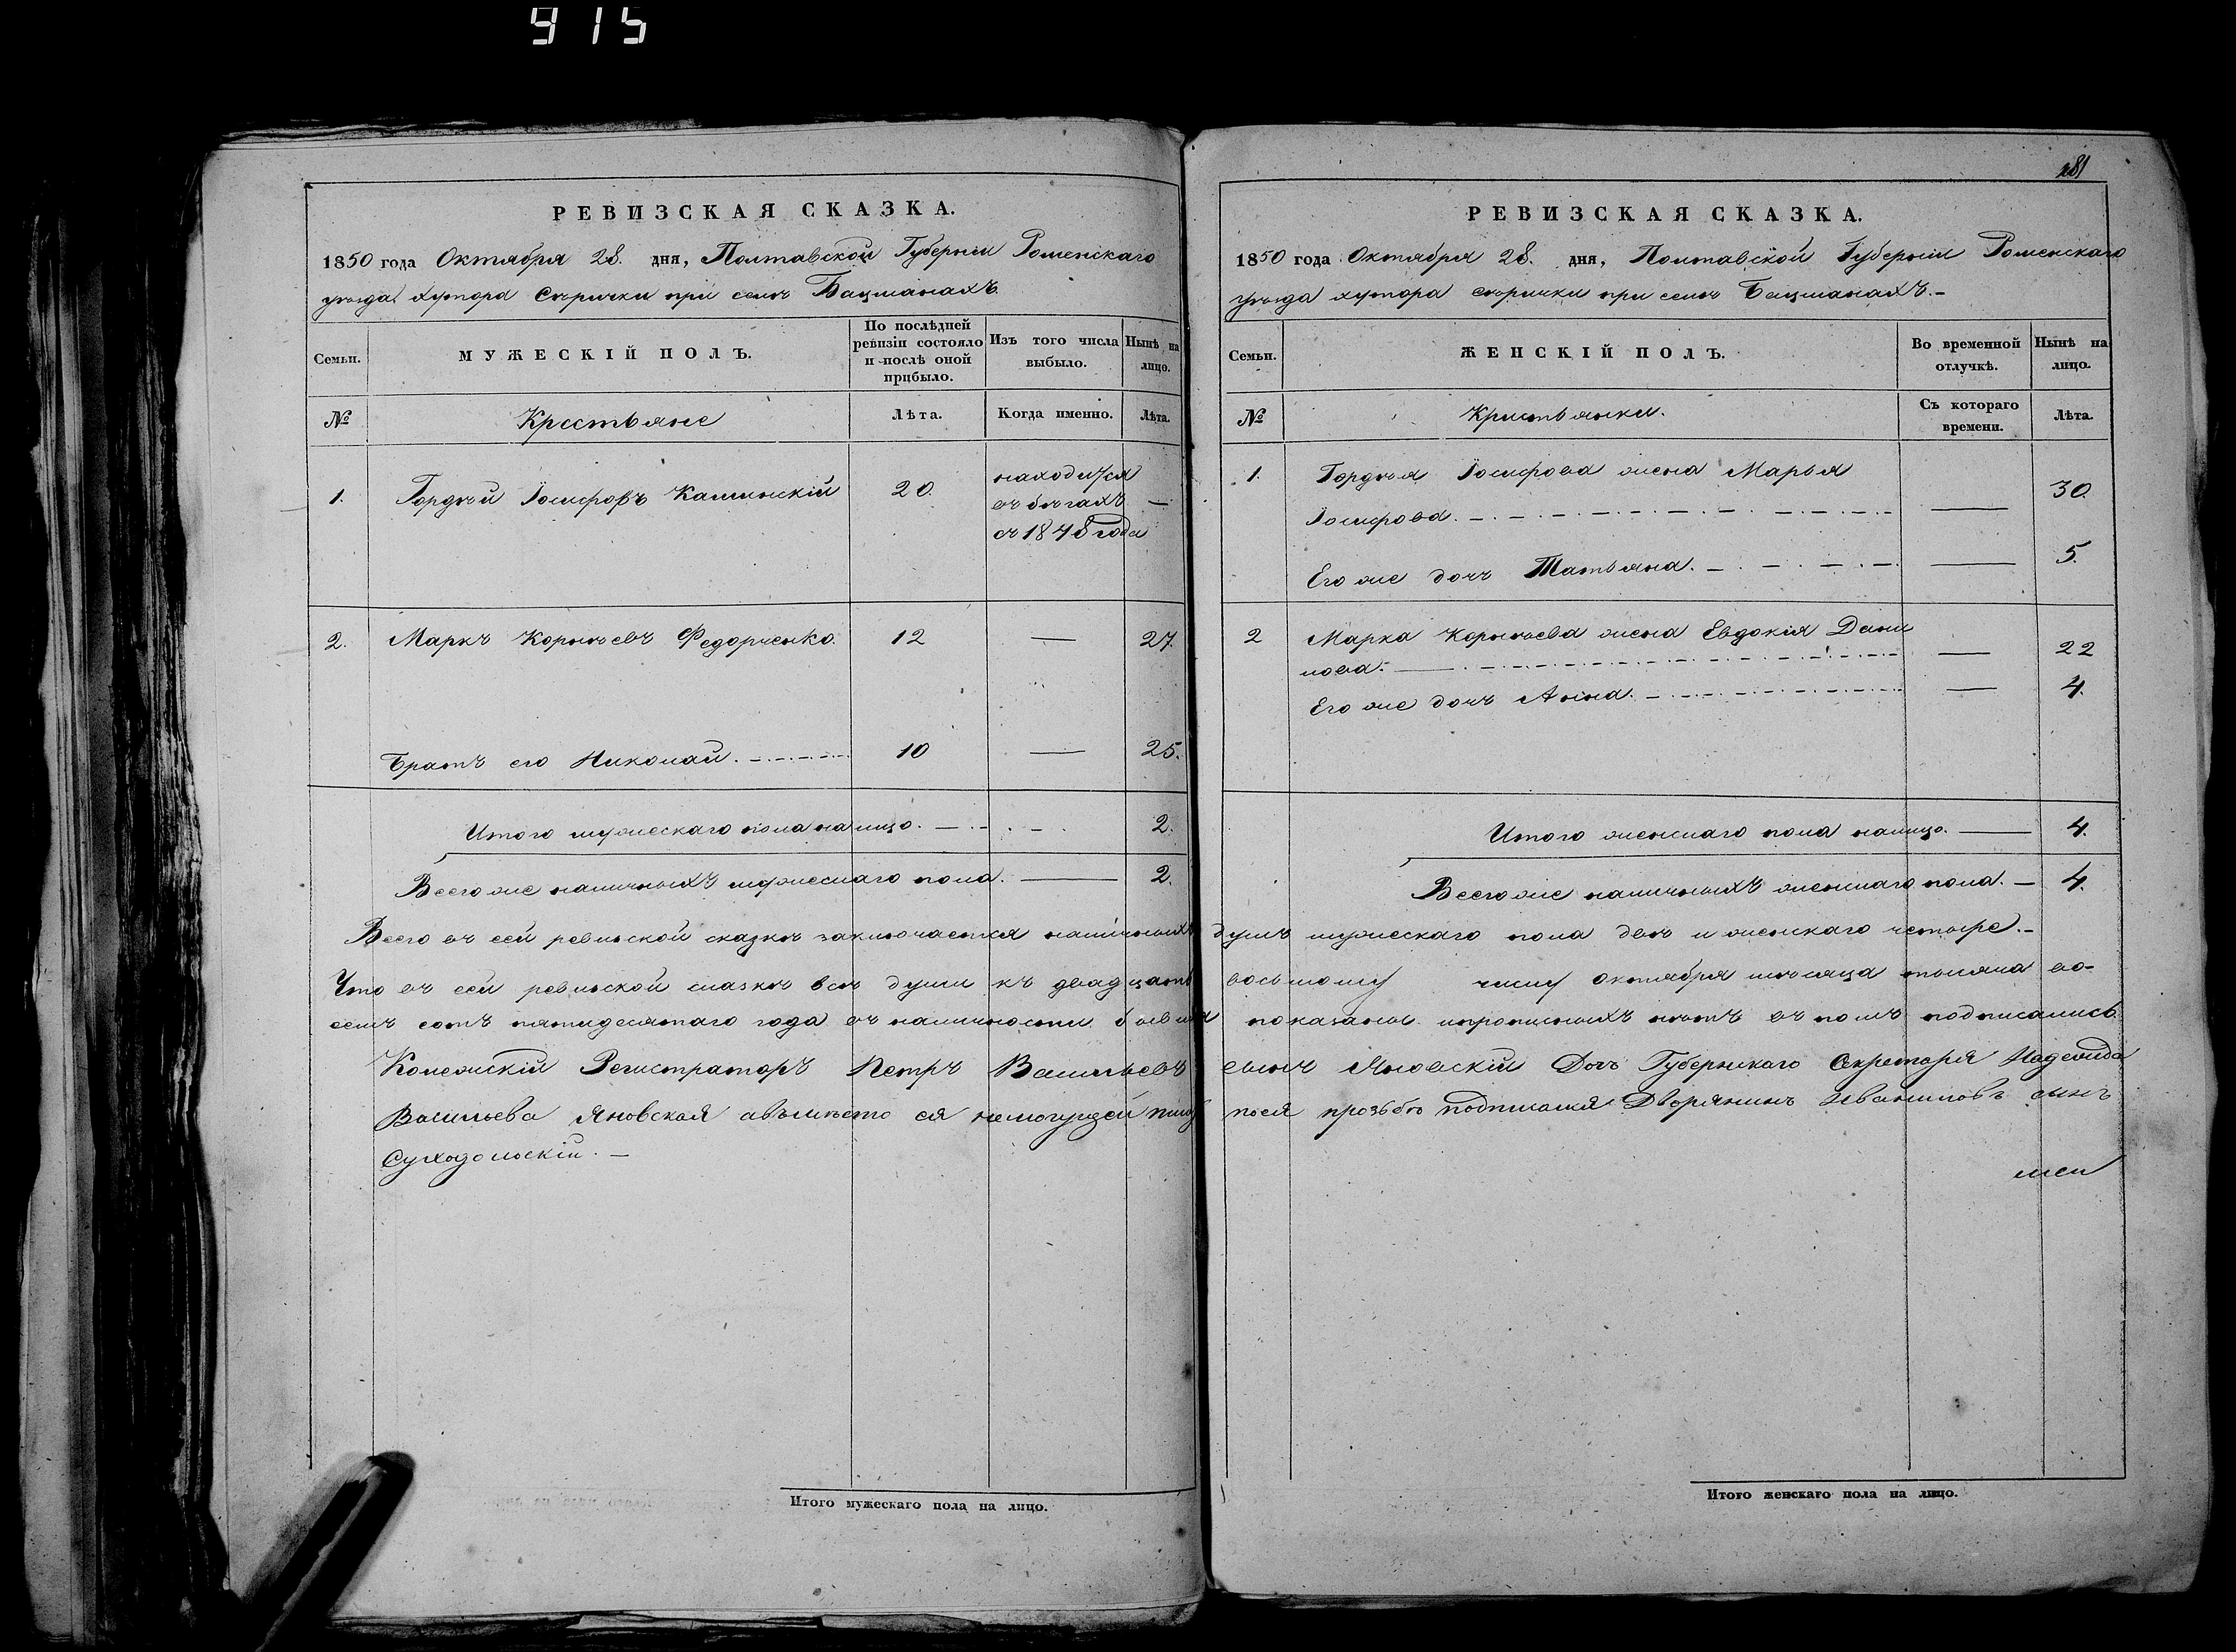 915
РЕВИЗСКАЯ СКАЗКА.
1850 года Октября 28. дня, Полтавской Губерніи Роменскаго
уѣзда хутора Сѣрички при селѣ Бацманахъ.
Семьи.
МУЖЕСКІЙ ПОЛЪ.
По послѣдней ревизіи состояло и послѣ оной прибыло.
Изъ того числа выбыло.
Нынѣ на лицо.
№
Крестьяне
Лѣта.
Когда именно.
Лѣта.
1. Гордѣй Іосифовъ Калинскій 20. находится
въ бѣгахъ —
съ 1848 года
2. Маркъ Корнѣевъ Федорченко. 12 — 27.
Братъ его Николай. 10 — 25.
Итого мужескаго пола налицо. 2.
Всего же наличныхъ мужескаго пола. — 2.
Итого мужескаго пола на лицо.
281
РЕВИЗСКАЯ СКАЗКА.
1850 года Октября 28. дня, Полтавской Губерніи Роменскаго
уѣзда хутора сѣрички при селѣ Бацманахъ.-
Семьи.
ЖЕНСКІЙ ПОЛЪ.
Во временной отлучкѣ.
Нынѣ на лицо.
№
Крестьянки.
Съ котораго времени.
Лѣта.
1. Гордѣя Іосифова жена Марья
Іосифова. — 30.
Его же дочь Татьяна. — 5.
2 Марка Корнѣева жена Евдокія Дани
лова. — 22
Его же дочь Анна. — 4.
Итого женскаго пола налицо. — 4.
Всего же наличныхъ женскаго пола. — 4.
Всего въ сей ревиской сказкѣ заключается наличныхъ душъ мужескаго пола двѣ и женскаго четыре.-
Что въ сей ревиской сказкѣ всѣ души къ двадцать восьмому числу октября мѣсяца тысяча во-
семь сотъ пятидесятаго года въ наличности бывшія показаны ипрописныхъ нѣтъ въ томъ подписались
Колежскій Регистраторъ Петръ Васильевъ сынъ Яновскій Дочь Губернскаго Секретаря Надежда
Васильева Яновская авъмѣсто ея немогущей поея прозьбѣ подписался Дворянинъ сынъ
Суходольскій. —
Итого женскаго пола на лицо.